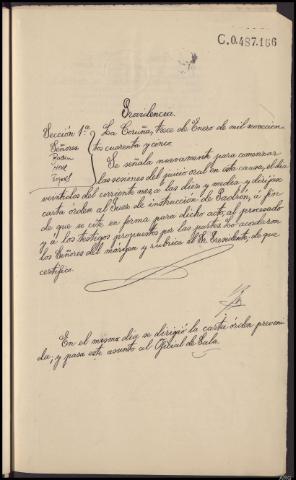 C.0.487.166
Providencia
Sección 1ª
Señores
La Coruña, trece de Enero de mil novecien-
tos cuarenta y cinco.
Se señala nuevamente para comenzar
las sesiones del juicio oral en esta causa, el día
veintidos del corriente mes a las diez y media y dirijase
carta orden al Juez de instrucción de Padrón, á fin
de que se cite en forma para dicho acto, al procesado
y á los testigos propuestos por las partes. Lo acordaron
los Señores del márgen y rubrica el Sr. Presidente, de que
certifico.
En el mismo dia se dirigió la carta órden preveni-
da; y pasa este asunto al Oficial de Sala.